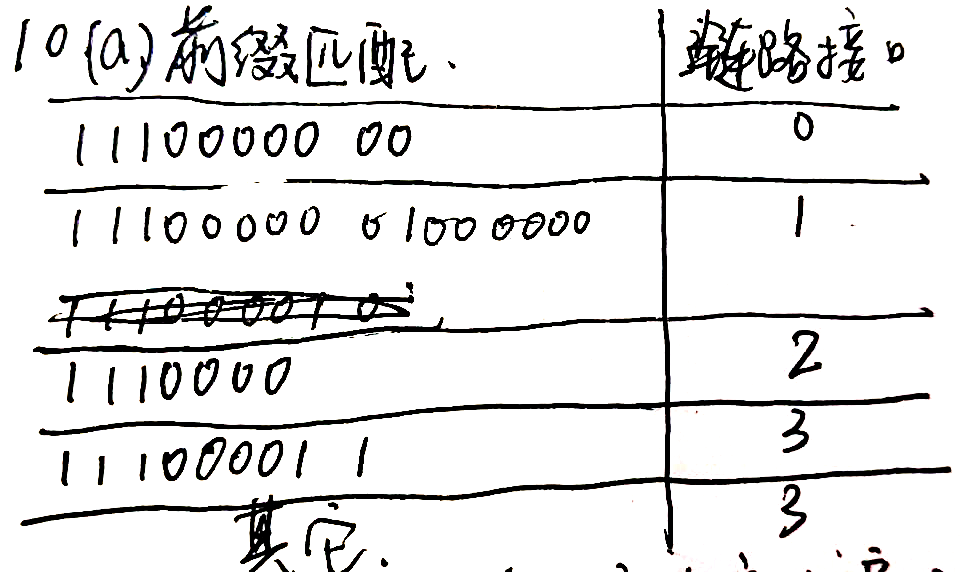 10 (a) 前缀匹配. 链路接口
11100000 00 0
11100000 01000000 1
1110000 2
11100001 1 3
其它. 3